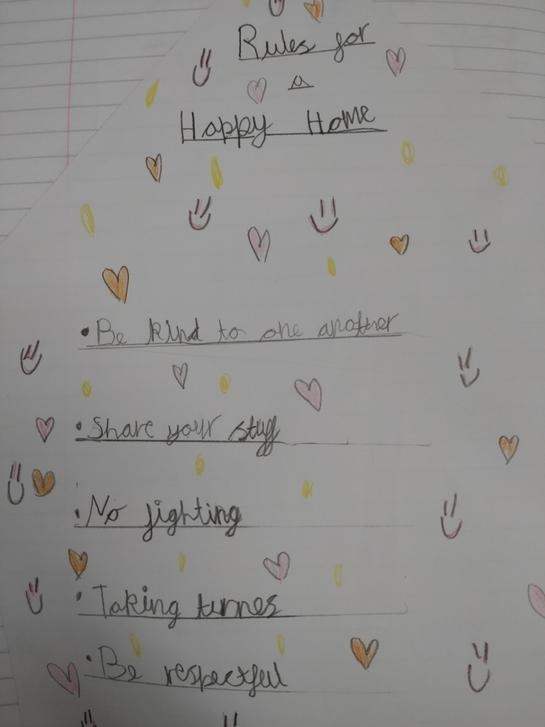 Rules for
a
Happy Home
• Be kind to one another
• Share your stuff
• No fighting
• Taking turnes
• Be respectful